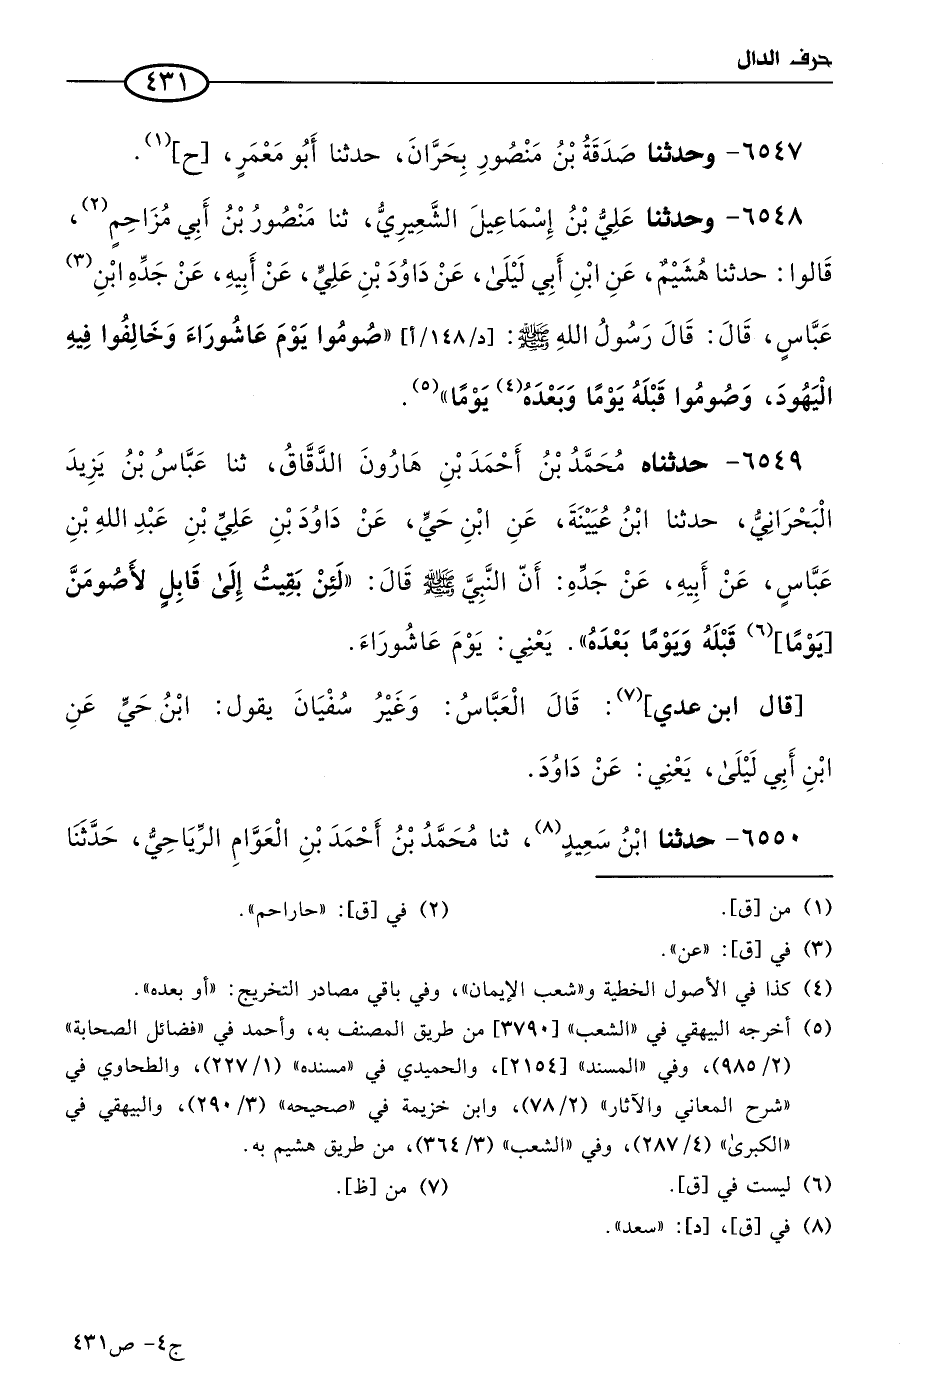 حرف الدال
٤٣١
٦٥٤٧- وحدثنا صَدَقَةُ بْنُ مَنْصُورٍ بِحَرَّانَ، حدثنا أَبُو مَعْمَرٍ، [ح](١).
٦٥٤٨- وحدثنا عَلِيُّ بْنُ إِسْمَاعِيلَ الشَّعِيرِيُّ، ثنا مَنْصُورُ بْنُ أَبِي مُزَاحِمٍ(٢)،
قَالوا: حدثنا هُشَيْمٌ، عَنِ ابْنِ أَبِي لَيْلَىٰ، عَنْ دَاوُدَ بْنِ عَلِيٍّ، عَنْ أَبِيهِ، عَنْ جَدِّهِ ابْنِ(٣)
عَبَّاسٍ، قَالَ: قَالَ رَسُولُ اللهِ ﷺ: [د/١٤٨/أ] «صُومُوا يَوْمَ عَاشُورَاءَ وَخَالِفُوا فِيهِ
الْيَهُودَ، وَصُومُوا قَبْلَهُ يَوْمًا وَبَعْدَهُ(٤) يَوْمًا»(٥).
٦٥٤٩- حدثناه مُحَمَّدُ بْنُ أَحْمَدَ بْنِ هَارُونَ الدَّقَّاقُ، ثنا عَبَّاسُ بْنُ يَزِيدَ
الْبَحْرَانِيُّ، حدثنا ابْنُ عُيَيْنَةَ، عَنِ ابْنِ حَيٍّ، عَنْ دَاوُدَ بْنِ عَلِيِّ بْنِ عَبْدِ اللهِ بْنِ
عَبَّاسٍ، عَنْ أَبِيهِ، عَنْ جَدِّهِ: أَنَّ النَّبِيَّ ﷺ قَالَ: «لَئِنْ بَقِيتُ إِلَىٰ قَابِلٍ لأَصُومَنَّ
[يَوْمًا](٦) قَبْلَهُ وَيَوْمًا بَعْدَهُ». يَعْنِي: يَوْمَ عَاشُورَاءَ.
[قال ابن عدي](٧): قَالَ الْعَبَّاسُ: وَغَيْرُ سُفْيَانَ يقول: ابْنُ حَيٍّ عَنِ
ابْنِ أَبِي لَيْلَىٰ، يَعْنِي: عَنْ دَاوُدَ.
٦٥٥٠- حدثنا ابْنُ سَعِيدٍ(٨)، ثنا مُحَمَّدُ بْنُ أَحْمَدَ بْنِ الْعَوَّامِ الرِّيَاحِيُّ، حَدَّثَنَا
(١) من [ق]. (٢) في [ق]: «حاراحم».
(٣) في [ق]: «عن».
(٤) كذا في الأصول الخطية و«شعب الإيمان»، وفي باقي مصادر التخريج: «أو بعده».
(٥) أخرجه البيهقي في «الشعب» [٣٧٩٠] من طريق المصنف به، وأحمد في «فضائل الصحابة»
(٢/ ٩٨٥)، وفي «المسند» [٢١٥٤]، والحميدي في «مسنده» (١/ ٢٢٧)، والطحاوي في
«شرح المعاني والآثار» (٢/ ٧٨)، وابن خزيمة في «صحيحه» (٣/ ٢٩٠)، والبيهقي في
«الكبرىٰ» (٤/ ٢٨٧)، وفي «الشعب» (٣/ ٣٦٤)، من طريق هشيم به.
(٦) ليست في [ق]. (٧) من [ظ].
(٨) في [ق]، [د]: «سعد».
ج٤- ص٤٣١